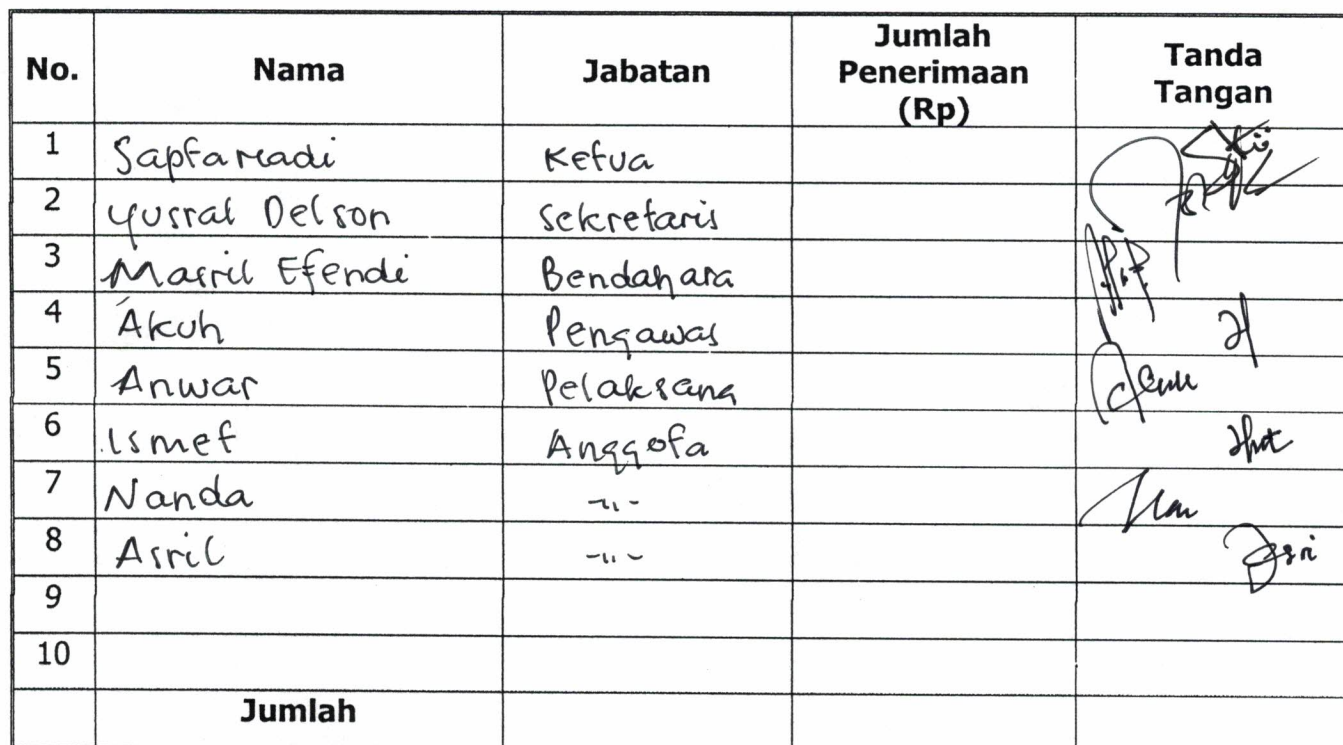 No. Nama Jabatan Jumlah Penerimaan (Rp) Tanda Tangan
1 Saptariadi Ketua
2 Yusral Delson Sekretaris
3 Masril Efendi Bendahara
4 Akuh Pengawas
5 Anwar Pelaksana
6 Ismet Anggota
7 Nanda -"-
8 Asril -"-
9
10
Jumlah